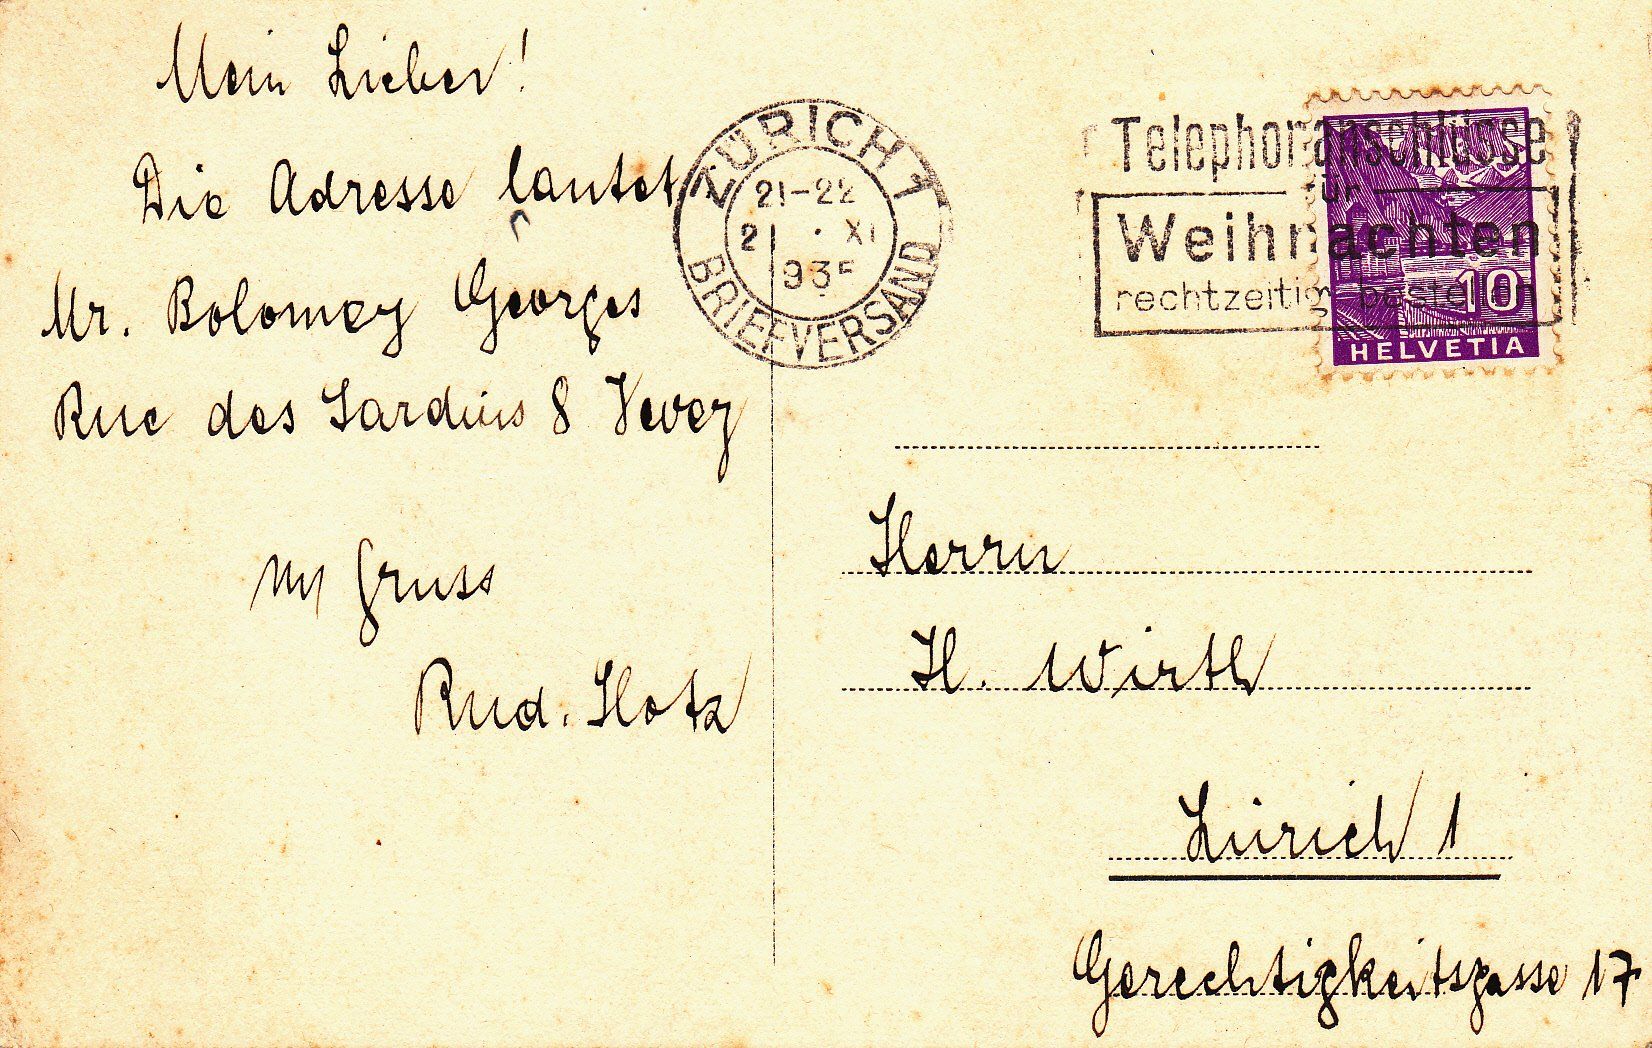 Mein Lieber!
Die Adresse lautet
Mr. Bolomey Georges
Rue des Jardins 8 Vevey
Gruss
Rud. Hotz
ZÜRICH 1
21-22
2 . XI
935
BRIEFVERSAND
Telephonanschlüsse
für
Weihnachten
rechtzeitig bestellen
10
HELVETIA
Herrn
H. Wirth
Zürich 1
Gerechtigkeitsgasse 17